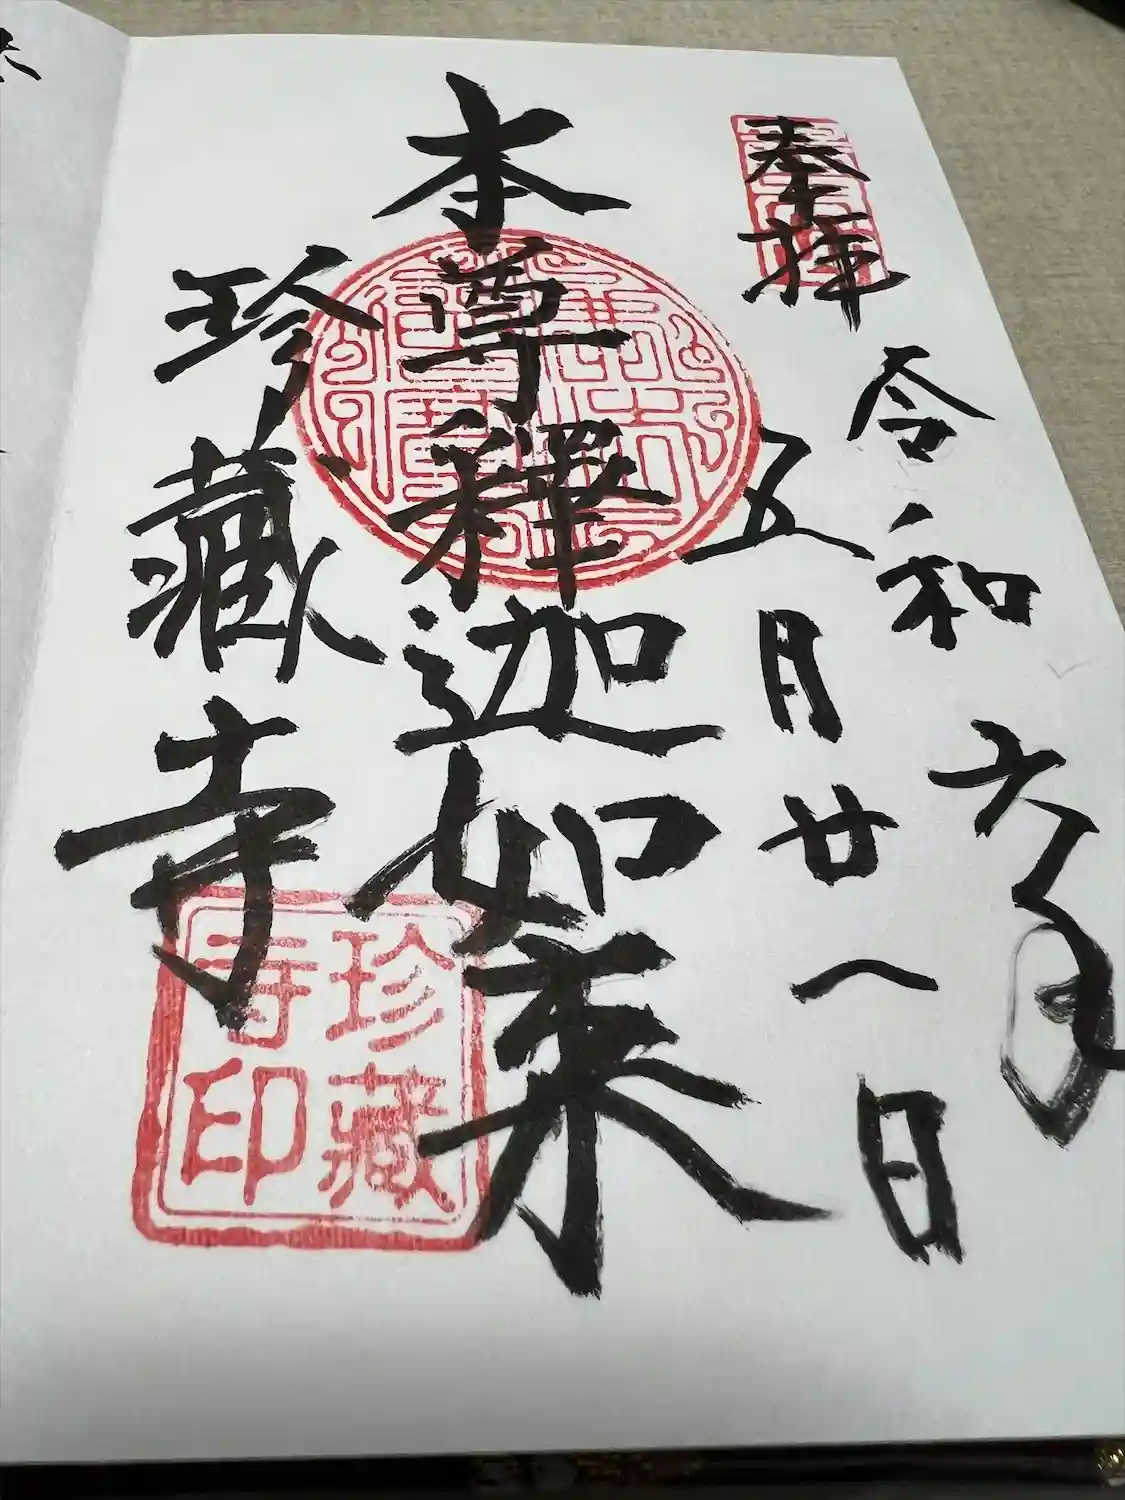 奉拝
令和六年
五月廿一日
本尊釋迦如来
珍藏寺
珍藏
寺印